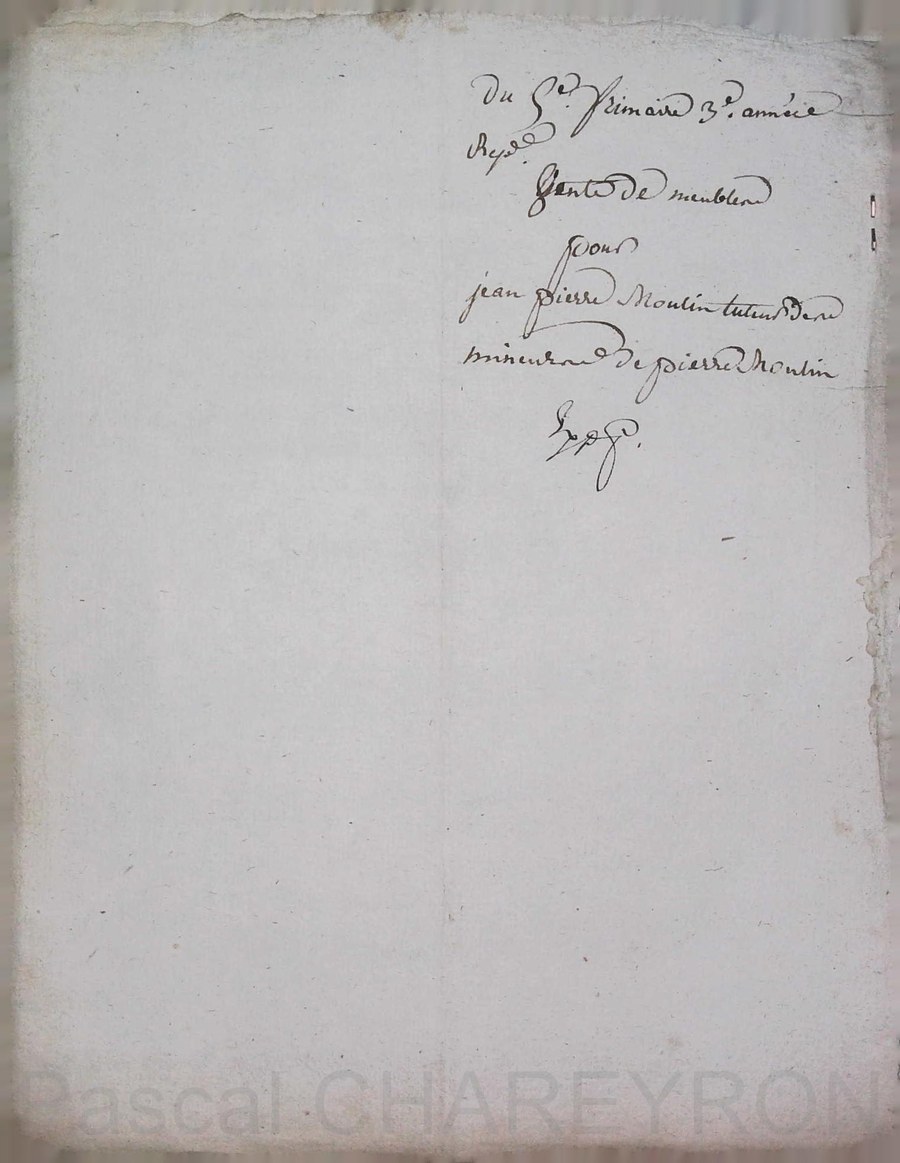 Du 5e. frimaire 3e. année
Repe.
Vente de meubles
pour
jean pierre Moulin tuteur des
mineurs de pierre Moulin
Exp
Pascal CHAREYRON